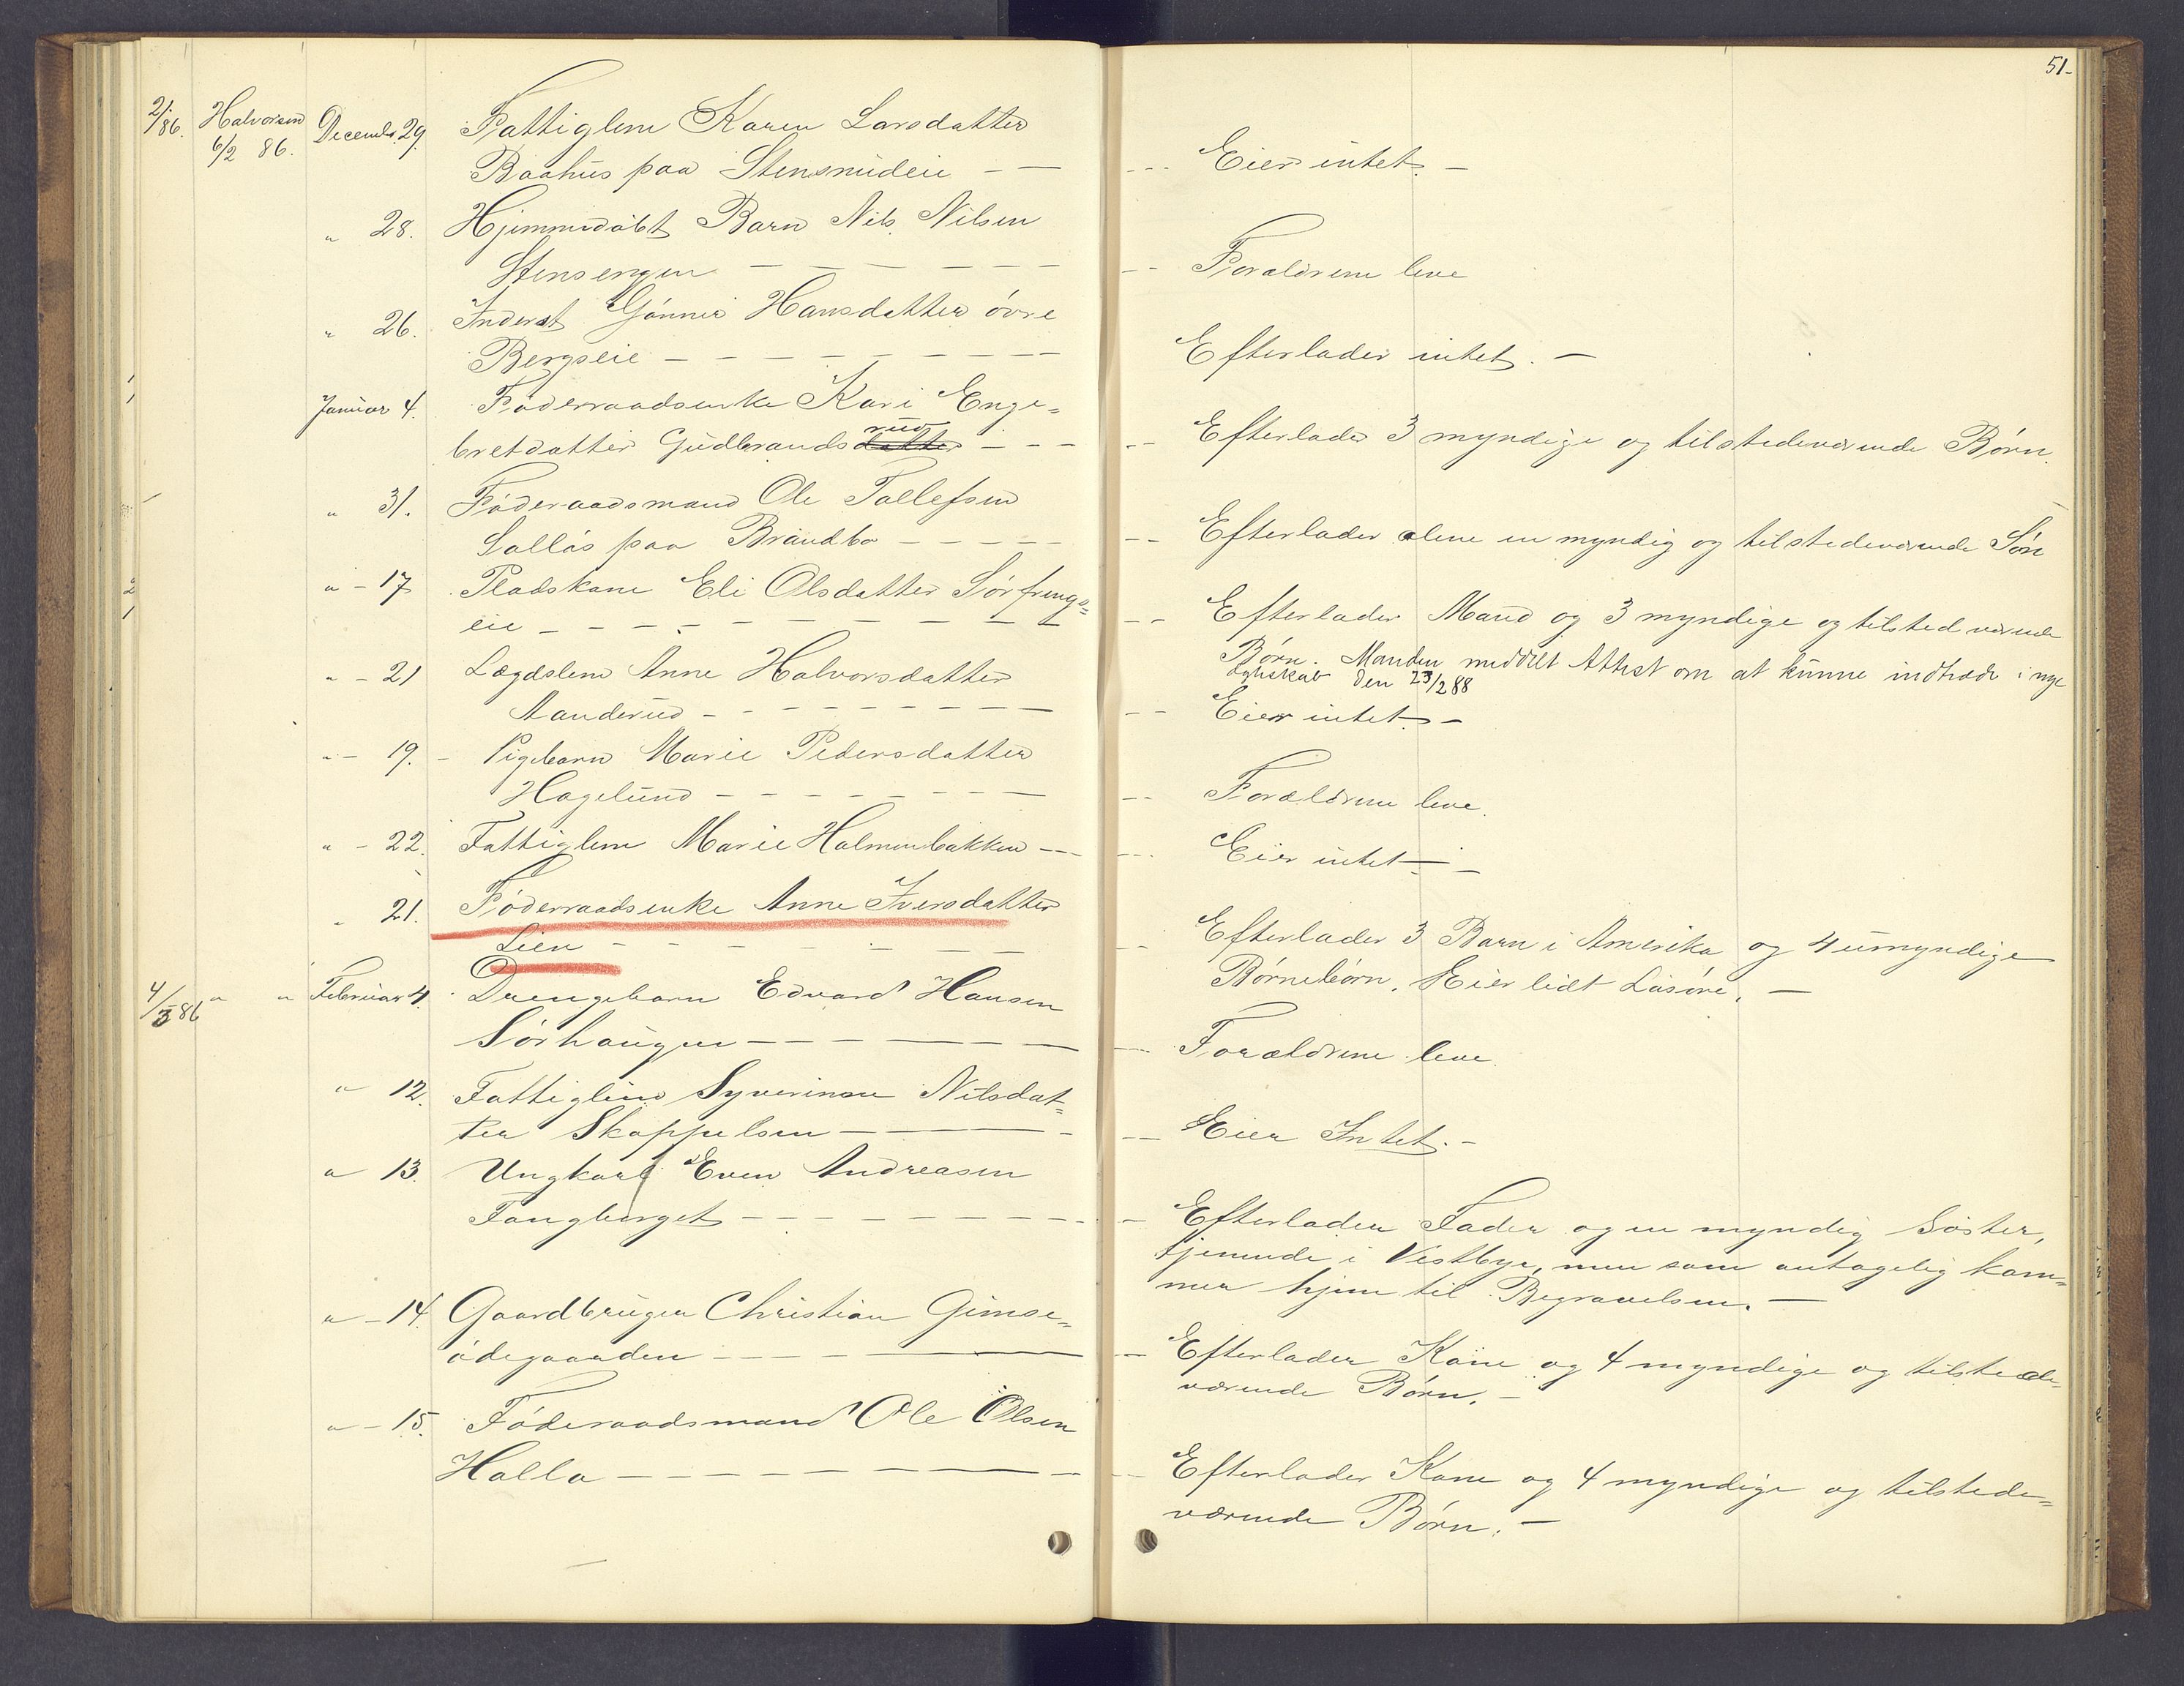 51-
2/86. Halvorsen 6/2 86. Decemb. 29. Fattiglem Karen Larsdatter
Baahus paa Stensrudeie - - --- Eier intet. -
" 28. Hjemmedøbt Barn Nils Nilsen
Stensengen - - - - - - -- Forældrene leve
" 26. Inderst Gønner Hansdatter øvre
Bergseie - - - - - - - - Efterlader intet. -
Januar 4. Føderraadsenke Kari Enge=
bretdatter Gudbrandsdatter rud - - - -- Efterlader 3 myndige og tilstedeværende Børn.
" 31. Føderaadsmand Ole Tollefsen
Sollös paa Brandbo - - - - - -- Efterlader alene en myndig og tilstedeværende Søn
" - 17 Pladskone Eli Olsdatter Sørfrengs=
eie - - - - - - - - - -- Efterlader Mand og 3 myndige og tilstedværende
Børn. Manden meddelt Attest om at kunne indtræde i nyt
Egteskab den 23/2 88
" - 21 Lægdslem Anne Halvorsdatter
Aanderud - - - - - - - - -- Eier intet. -
" - 19. - Pigebarn Marie Pedersdatter
Hagelund - - - - - - - -- Forældrene leve.
" - 22. Fattiglem Marie Holmenbakken --- --- Eier intet -
" 21. Føderraadsenke Anne Iversdatter
Lien - - - - - - - -- Efterlader 3 Barn i Amerika og 4 umyndige
Børnebørn. Eier lidt Løsøre. -
4/3 86 " " Februar 4. Drengebarn Edvard Hansen
Sørhaugen - - - - - - --- Forældrene leve.
" 12. Fattiglem Syverine Nilsdat=
ter Skappelsen - - - -- Eier Intet. -
" 13. Ungkarl Even Andreasen
Fangberget - - - - - - - - Efterlader Fader og en myndig Søster,
tjenende i Vestbye, men som antagelig kom=
mer hjem til Begravelsen. -
" - 14. Gaardbruger Christian Gimse=
ödegaarden - - - - -- Efterlader Kone og 4 myndige og tilstede=
værende Børn. -
" - 15. Føderaadsmand Ole Olsen
Halla - - - - - - - -- Efterlader Kone og 4 myndige og tilstede=
værende Børn. -